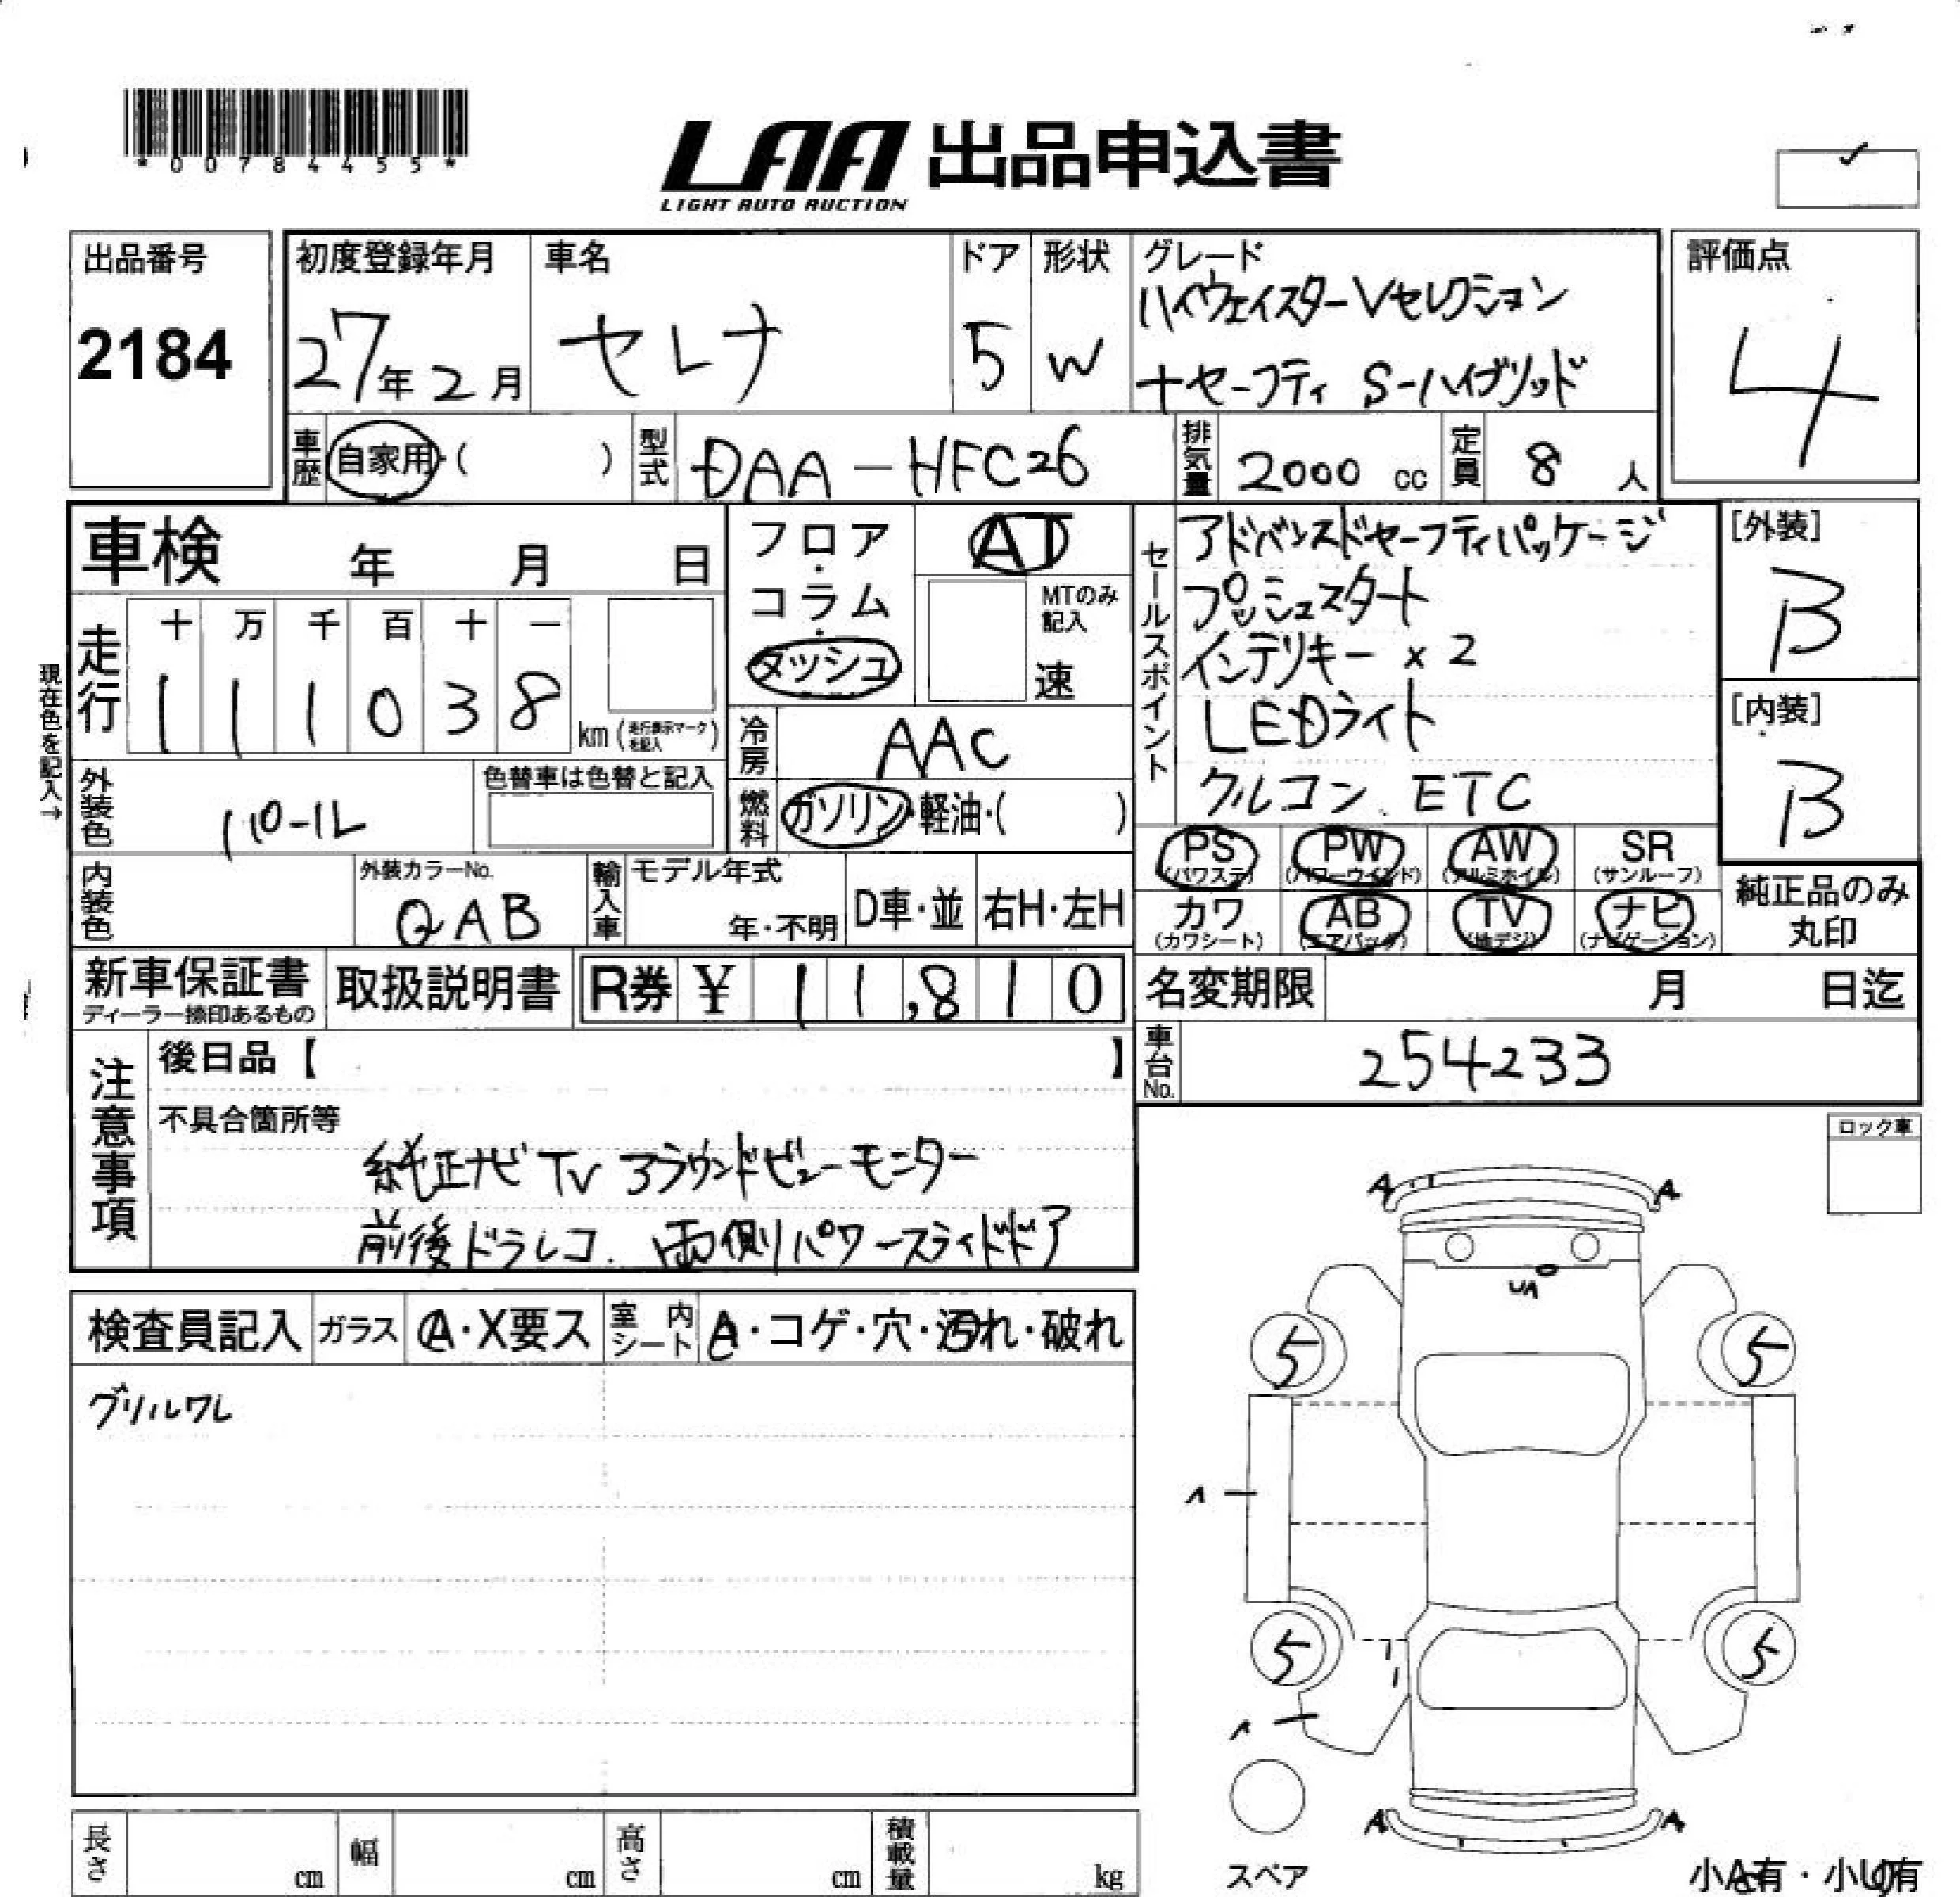 *00784455*
LAA 出品申込書
LIGHT AUTO AUCTION
出品番号
2184
初度登録年月
27年2月
車名
セレナ
ドア
5
形状
W
グレード
ハイウェイスターVセレクション
+セーフティ S-ハイブリッド
評価点
4
車歴 自家用・( )
型式 DAA-HFC26
排気量 2000 cc
定員 8 人
車検 年 月 日
フロア・コラム・ダッシュ
AT
MTのみ記入
速
セールスポイント
アドバンスドセーフティパッケージ
プッシュスタート
インテリキー×2
LEDライト
クルコン ETC
[外装]
B
[内装]
B
現在色を記入→
走行
十 万 千 百 十 一
1 1 1 0 3 8
km (走行表示マークを記入)
冷房 AAC
外装色 パール
色替車は色替と記入
燃料 ガソリン・軽油・( )
PS (パワステ)
PW (パワーウインド)
AW (アルミホイル)
SR (サンルーフ)
カワ (カワシート)
AB (エアバッグ)
TV (地デジ)
ナビ (ナビゲーション)
純正品のみ
丸印
内装色
外装カラーNo.
QAB
輸入車
モデル年式
年・不明
D車・並
右H・左H
新車保証書
ディーラー捺印あるもの
取扱説明書
R券 ¥ 11,810
名変期限 月 日迄
車台No. 254233
注意事項
後日品【 】
不具合箇所等
純正ナビ TV アラウンドビューモニター
前後ドラレコ. 両側パワースライドドア
ロック車
検査員記入
ガラス A・X要ス
室内シート
・コゲ・穴・汚れ・破れ
グリルワレ
A A
5 5
5 5
A A
スペア
長さ cm
幅 cm
高さ cm
積載量 kg
小A有・小U有